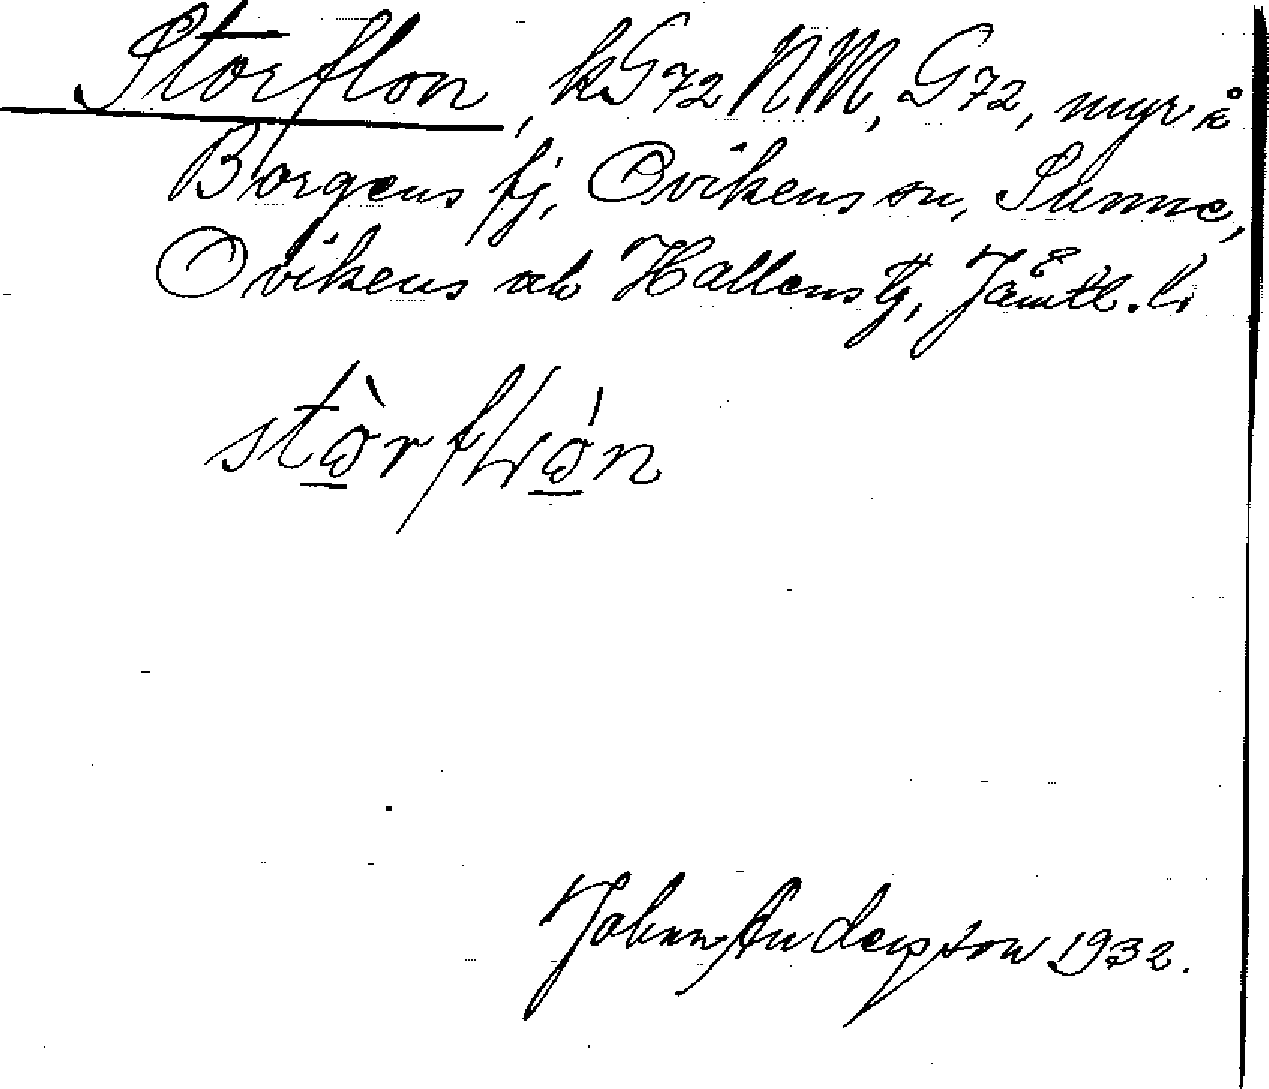 Storflon, kG72NM, G72, myr å
Borgens fj, Ovikens sn, Sunne,
Ovikens och Hallens tg, Jämtl. l.
stòrflón
Johan Andersson 1932.